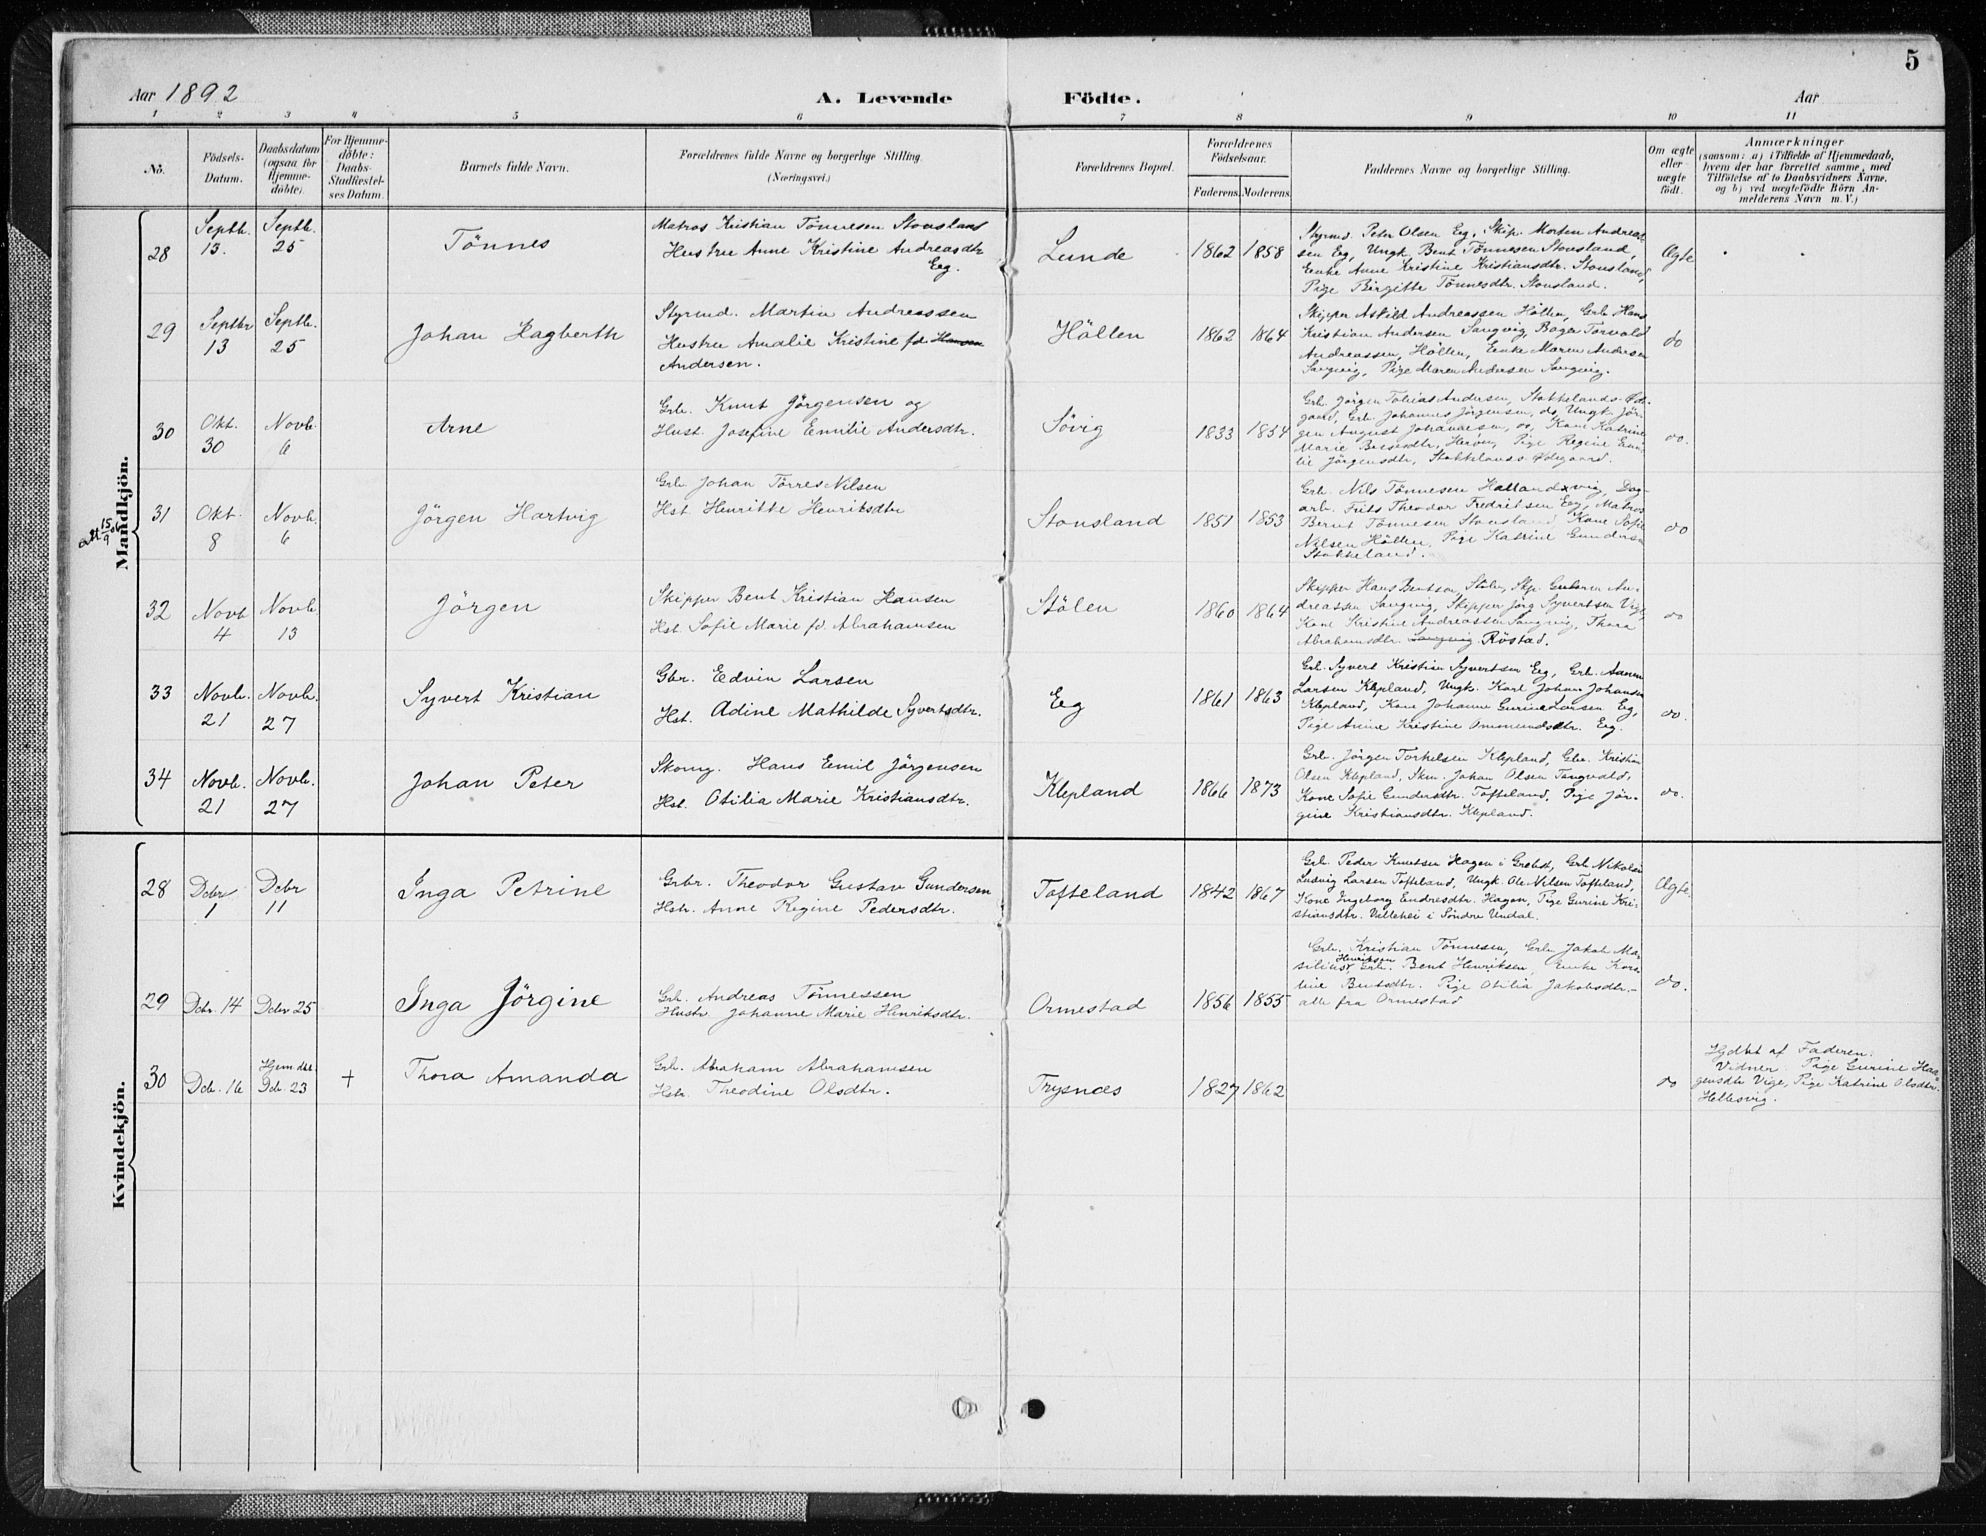 5
Aar 1892 A. Levende Födte. Aar
1 2 3 4 5 6 7 8 9 10 11
No.
Födsels-
Datum.
Daabsdatum
(ogsaa for
Hjemme-
döbte).
For Hjemme-
döbte:
Daabs-
Stadfæstel-
ses Datum.
Barnets fulde Navn.
Forældrenes fulde Navne og borgerlige Stilling.
(Næringsvei.)
Forældrenes Bopæl.
Forældrenes
Födselsaar.
Faderens. Moderens.
Faddernes Navne og borgerlige Stilling.
Om ægte
eller
uægte
födt.
Anmærkninger
(saasom: a) i Tilfælde af Hjemmedaab,
hvem der har forrettet samme, med
Tilföielse af to Daabsvidners Navne,
og b) ved uægtefödte Börn An-
melderens Navn m. V.)
Mandkjön.
28
Septb.
13.
Septb.
25
Tönnes
Matros Kristian Tönnesen Stousland
Hustru Anne Kristine Andreasdtr
Eeg.
Lunde
1862 1858
Styrmd. Peter Olsen Eeg, Skip. Morten Andreas-
sen Eeg, Ungk. Bent Tönnesen Stousland,
Enke Anne Kristine Kristiansdtr. Stousland,
Pige Birgitte Tönnesdtr. Stousland.
Ægte
29
Septbr
13
Septb.
25
Johan Hagberth
Styrmd. Martin Andreassen
Hustru Amalie Kristine fd. Hansen
Andersen.
Höllen
1862 1864
Skipper Askild Andreassen Höllen, Grb. Hans
Kristian Andersen Langvig, Torvald
Andreassen, Höllen, Enke Maren Andersen
Langvig, Pige Maren Andersen Langvig.
do
30
Okt.
30
Novb.
6
Arne
Grb. Knut Jörgensen og
Hust. Josefine Emilie Andersdtr.
Sövig
1833 1854
Grb. Jörgen Tobias Andersen, Stokkelands-Öde-
gaard, Grb. Johannes Jörgensen, do, Ungk. Jör-
gen August Johannesen, do, Kone Katrine
Marie, Pige Regine Emi-
lie Jörgensdtr, Stokkelands Ödegaard.
do.
31
Okt.
8
Novb.
6
Jörgen Hartvig
Grb. Johan Törres Nilsen
Hst. Henritte Henriksdtr
Stousland
1851 1853
Grb. Nils Tönnesen Hallandvig, Dag-
arb. Frits Theodor Fredriksen Eeg, Matros
Bernt Tönnesen Stousland, Kone Sofie
Nilsen Höllen, Pige Katrine Gunders
Stokkeland.
do
att 15/9 06
32
Novb
4
Novb
13
Jörgen
Skipper Bent Kristian Hansen
Hst. Sofie Marie fd. Abrahamsen
Stölen
1860 1864
Skipper Hans Bentsen, Stölen, Skp. An-
dreassen Langvig, Skipper Jörg Syvertsen Vige,
Kone Kristine Andreassen Langvig, Thora
Abrahamsdtr. Langvig Röstad.
do
33
Novb.
21
Novb.
27
Syvert Kristian
Gbr. Edvin Larsen
Hst. Adine Mathilde Syvertsdtr.
Eeg
1861 1863
Grb. Syvert Kristian Syvertsen Eeg, Grb. Aanen
Larsen Klepland, Ungk. Karl Johan Johansen
Klepland, Kone Johanne Gurine Larsen Eeg,
Pige Anne Kristine Ommundsdtr. Eeg.
do.
34
Novb.
21
Novb.
27
Johan Peter
Skomg. Hans Emil Jörgensen
Hst. Otilia Marie Kristiansdtr.
Klepland
1866 1873
Grb. Jörgen Torkelsen Klepland, Gbr. Kristian
Olsen Klepland, Skm. Johan Olsen Tangvald,
Kone Sofie Gundersdtr. Tofteland, Pige Jör-
gine Kristiansdtr. Klepland.
do.
Kvindekjön.
28
Dcbr
1
Dcbr
11
Inga Petrine
Grbr. Theodor Gustav Gundersen
Hstr. Anne Regine Pedersdtr.
Tofteland
1842 1867
Grb. Peder Knutsen Hagen i Grebst, Grb Nikolai
Ludvig Larsen Tofteland, Ungk. Ole Nilsen Tofteland,
Kone Ingeborg Endresdtr. Hagen, Pige Gurine Kri-
stiansdtr. Villehei i Söndre Undal.
Ægte
29
Dcbr. 14
Dcbr 25
Inga Jörgine
Grb. Andreas Tönnessen
Hustr. Johanne Marie Henriksdtr.
Ormestad
1856 1855
Grb. Kristian Tönnesen, Grb. Jakob Ma-
silius Henriksen, Grb. Bent Henriksen, Enke Kors-
line Bentsdtr. Pige Otilia Jakobsdtr.-
alle fra Ormestad
do.
30
Dcb. 16
Hjemdbt
Dcb. 23
+
Thora Amanda
Grb. Abraham Abrahamsen
Hstr. Theodine Olsdtr.
Trysnæs
1827 1862
do
Hjdbt af Faderen.
Vidner. Pige Gurine Haa-
gensdtr Vige, Pige Katrine Olsdtr.
Hellesvig.